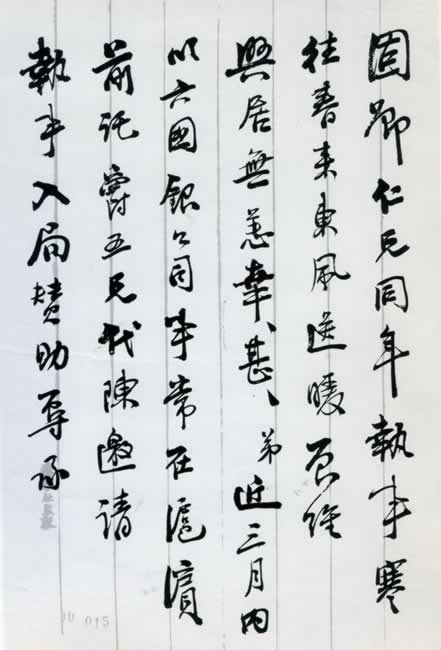 固卿仁兄同年執事寒
往春来東風送暖辰維
興居無恙幸〻甚〻弟近三月内
以六國銀公司事常在滬濱
前託爵五兄代陳邀請
執事入局贊助辱承
015